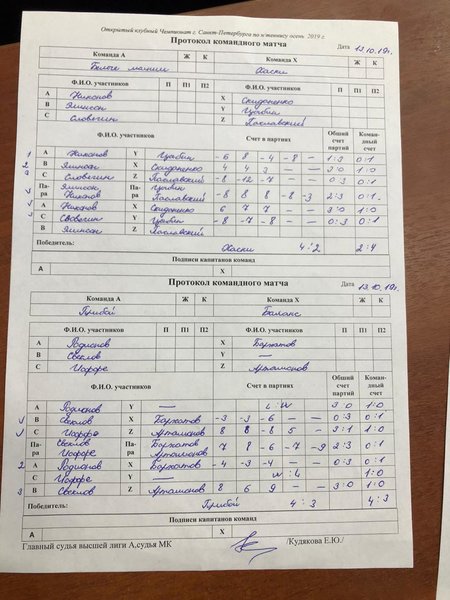 Открытый клубный Чемпионат г. Санкт-Петербурга по н/теннису осень 2019 г.
Протокол командного матча Дата 13.10.19г.
Команда А Ж К Команда Х Ж К
Белые ночи Хаски
Ф.И.О. участников П П1 П2 Ф.И.О. участников П П1 П2
А Никонов X Скидоненко
В Y Цыбин
С Словягин Z
Ф.И.О. участников Ф.И.О. участников Счет в партиях Общий счет партий Командный счет
1 А Никонов Y Цыбин -6 8 -4 -8 – 1:3 0:1
2 В X Скидоненко 4 4 3 – – 3:0 1:0
С Словягин Z -8 -12 -7 – – 0:3 0:1
Пара Никонов Пара Цыбин -8 8 8 -8 -3 2:3 0:1
А Никонов X Скидоненко 6 7 7 – – 3:0 1:0
С Словягин Y Цыбин -8 -7 -8 – – 0:3 0:1
В Z
Победитель: Хаски 4:2 2:4
Подписи капитанов команд
А X
Протокол командного матча Дата 13.10.19г.
Команда А Ж К Команда Х Ж К
Прибой Баланс
Ф.И.О. участников П П1 П2 Ф.И.О. участников П П1 П2
А Родионов X Бархатов
В Свеклов Y —
С Иоффе Z Артамонов
Ф.И.О. участников Ф.И.О. участников Счет в партиях Общий счет партий Командный счет
А Родионов Y — L:W 3:0 1:0
В Свеклов X Бархатов -3 -3 -6 – – 0:3 0:1
С Иоффе Z Артамонов 8 8 -8 5 – 3:1 1:0
Пара Свеклов Иоффе Пара Бархатов Артамонов 7 8 -6 -7 -9 2:3 0:1
2 А Родионов X Бархатов -4 -3 -4 – – 0:3 0:1
С Иоффе Y — W:L 1:0
3 В Свеклов Z Артамонов 8 6 9 – – 3:0 1:0
Победитель: Прибой 4:3 4:3
Подписи капитанов команд
А X
Главный судья высшей лиги А,судья МК /Кудякова Е.Ю./